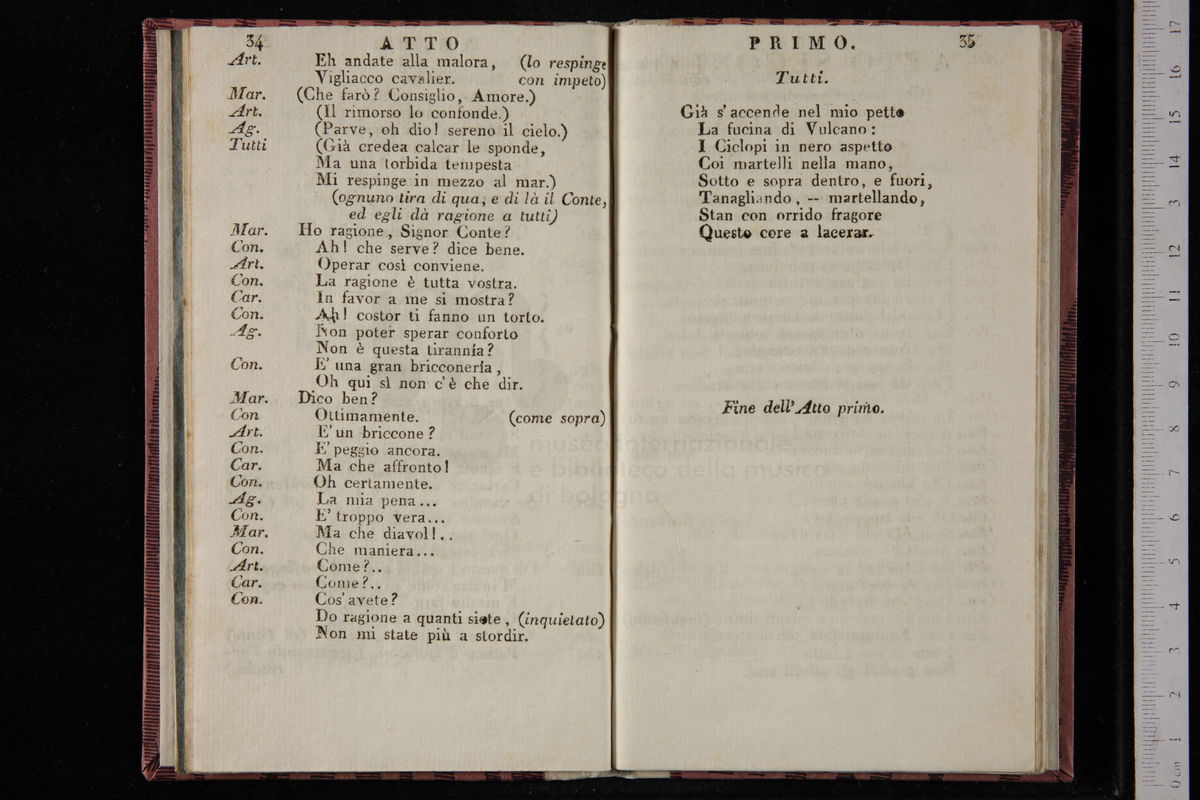 34 ATTO
Art. Eh andate alla malora, (lo respinge
Vigliacco cavalier. con impeto)
Mar. (Che farò? Consiglio, Amore.)
Art. (Il rimorso lo confonde.)
Ag. (Parve, oh dio! sereno il cielo.)
Tutti (Già credea calcar le sponde,
Ma una torbida tempesta
Mi respinge in mezzo al mar.)
(ognuno tira di qua, e di là il Conte,
ed egli dà ragione a tutti)
Mar. Ho ragione, Signor Conte?
Con. Ah! che serve? dice bene.
Art. Operar così conviene.
Con. La ragione è tutta vostra.
Car. In favor a me si mostra?
Con. Ah! costor ti fanno un torto.
Ag. Non poter sperar conforto
Non è questa tirannía?
Con. E' una gran bricconería,
Oh qui sì non c'è che dir.
Mar. Dico ben?
Con Ottimamente. (come sopra)
Art. E' un briccone?
Con. E' peggio ancora.
Car. Ma che affronto!
Con. Oh certamente.
Ag. La mia pena...
Con. E' troppo vera...
Mar. Ma che diavol!..
Con. Che maniera...
Art. Come?..
Car. Come?..
Con. Cos' avete?
Do ragione a quanti siete, (inquietato)
Non mi state più a stordir.
PRIMO. 35
Tutti.
Già s' accende nel mio petto
La fucina di Vulcano:
I Ciclopi in nero aspetto
Coi martelli nella mano,
Sotto e sopra dentro, e fuori,
Tanagliando, -- martellando,
Stan con orrido fragore
Questo core a lacerar.
Fine dell' Atto primo.
museo internazionale
e biblioteca della musica
di bologna
0 cm 1 2 3 4 5 6 7 8 9 10 11 12 13 14 15 16 17